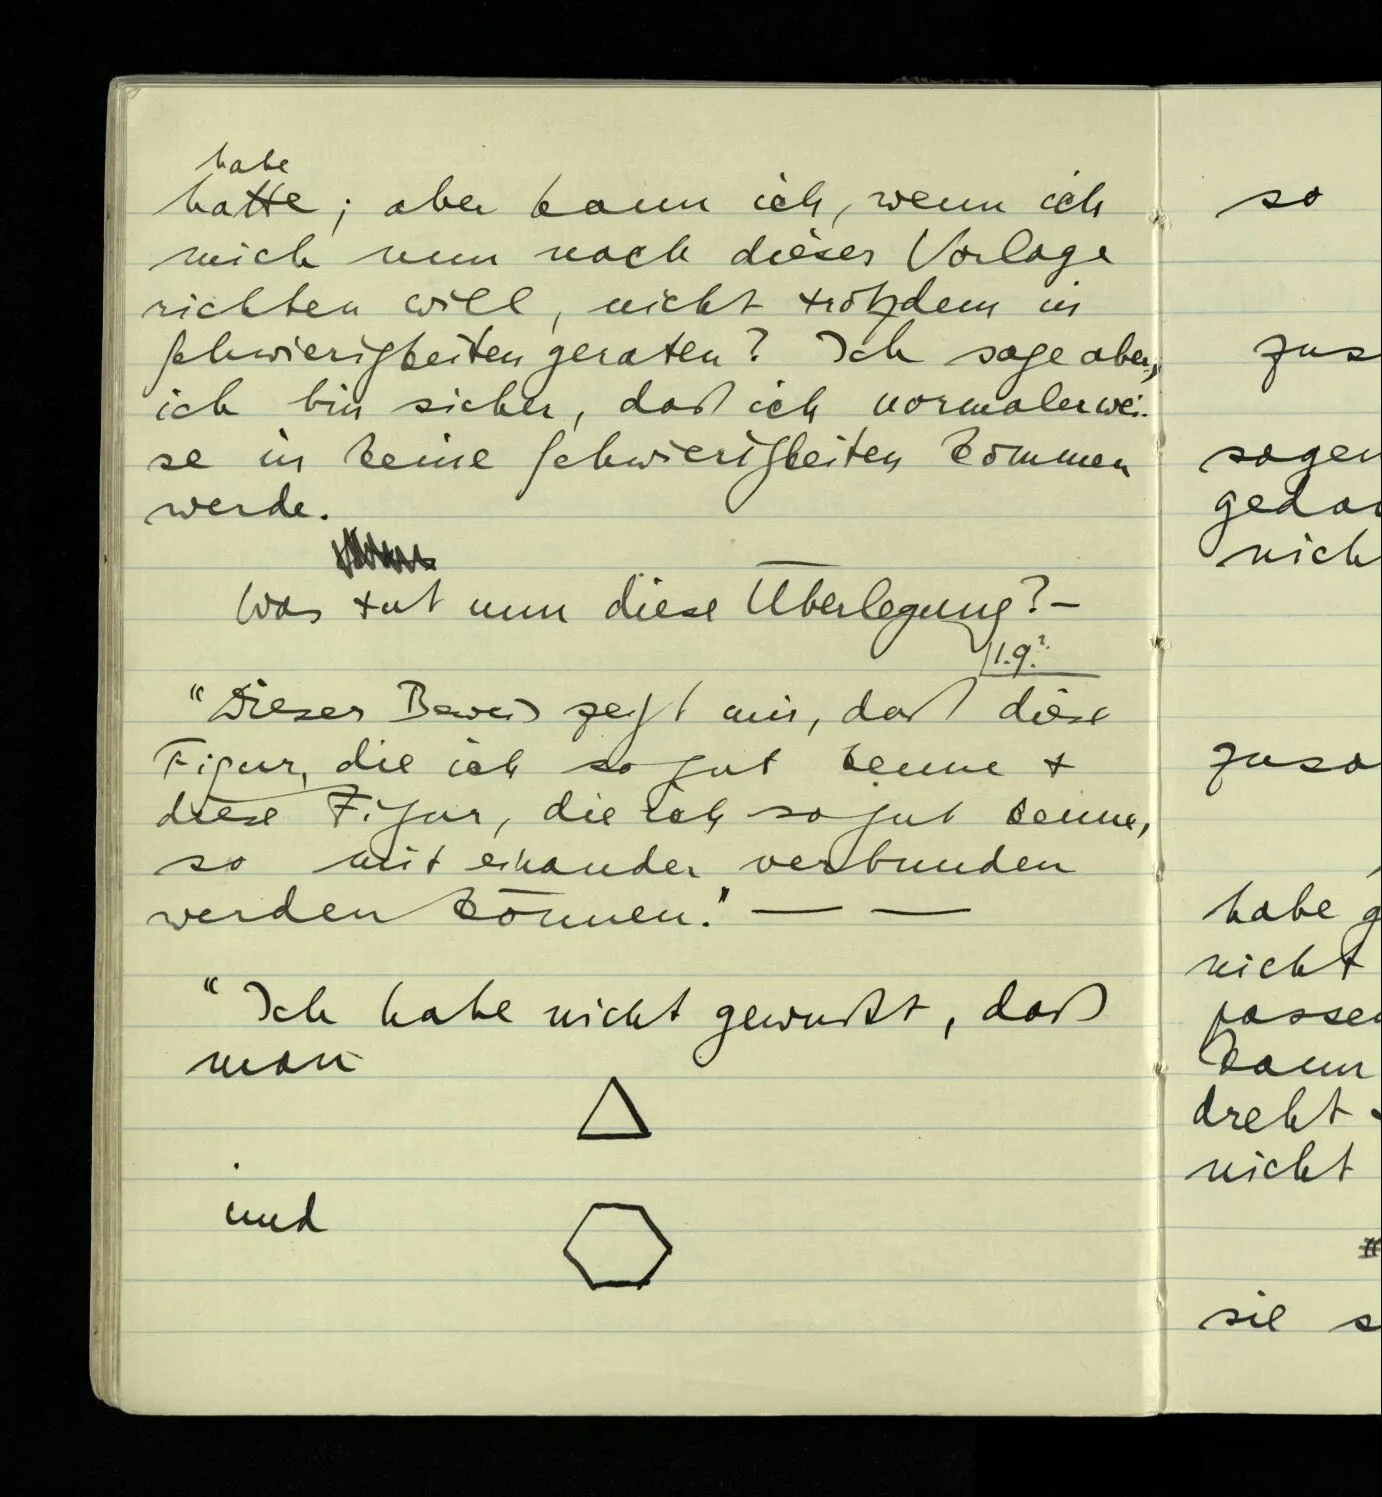 habe
hatte; aber kann ich, wenn ich
mich nun nach dieser Vorlage
richten will, nicht trotzdem in
Schwierigkeiten geraten? Ich sage aber,
ich bin sicher, daß ich normalerwei-
se in keine Schwierigkeiten kommen
werde.
Was tut nun diese Überlegung? –
1.9.?
"Dieser Beweis zeigt mir, daß diese
Figur, die ich so gut kenne +
diese Figur, die ich so gut kenne,
so mit einander verbunden
werden können." — —
"Ich habe nicht gewußt, daß
man
und
so
zus
sagen
gedan
nich
zusa
habe g
nicht
passe
kann
dreht
nicht
sie s